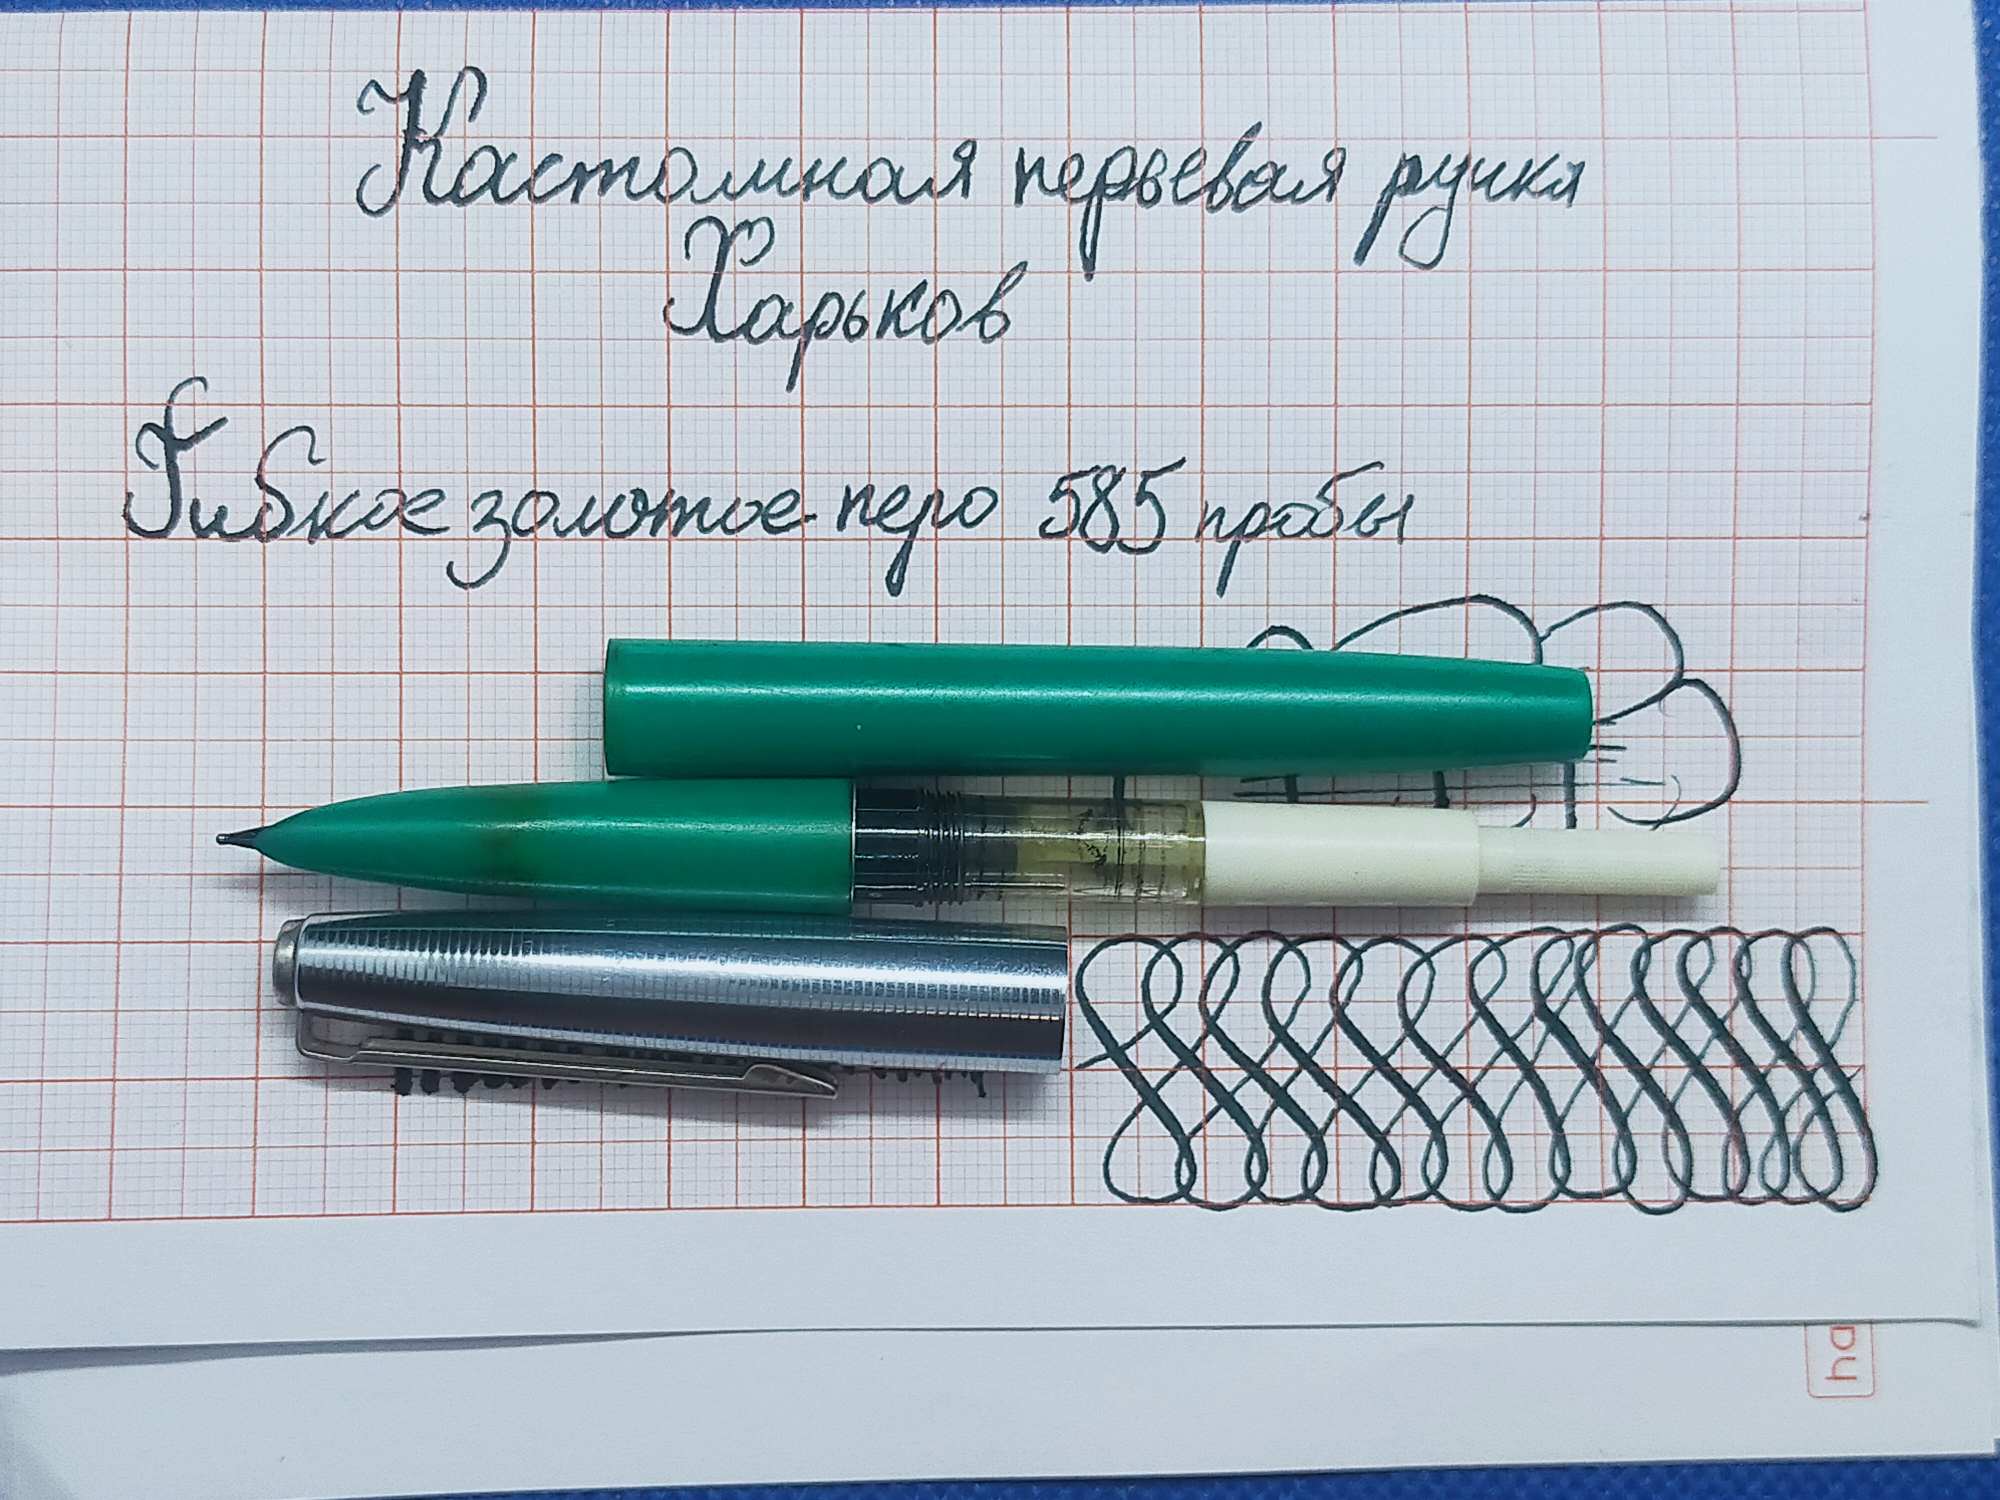 Кастомная перьевая ручка
Харьков
Гибкое золотое перо 585 пробы
ha